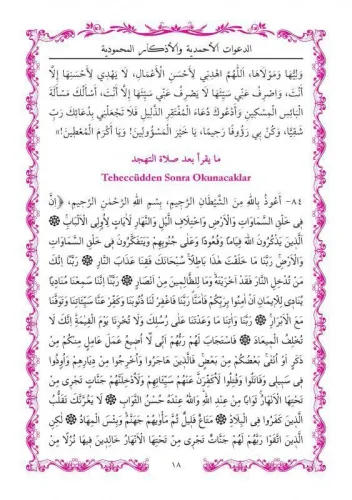 الدعوات الأحمدية والأذكار المحمودية
وَلِيُّهَا وَمَوْلَاهَا، اَللّٰهُمَّ اهْدِنِي لِأَحْسَنِ الْأَعْمَالِ، لَا يَهْدِي لِأَحْسَنِهَا إِلَّا
أَنْتَ، وَاصْرِفْ عَنِّي سَيِّئَهَا لَا يَصْرِفُ عَنِّي سَيِّئَهَا إِلَّا أَنْتَ، أَسْأَلُكَ مَسْأَلَةَ
الْبَائِسِ الْمِسْكِينِ وَأَدْعُوكَ دُعَاءَ الْمُفْتَقِرِ الذَّلِيلِ فَلَا تَجْعَلْنِي بِدُعَائِكَ رَبِّ
شَقِيًّا، وَكُنْ بِي رَؤُوفًا رَحِيمًا، يَا خَيْرَ الْمَسْؤُولِينَ! وَيَا أَكْرَمَ الْمُعْطِينَ!»
ما يقرأ بعد صلاة التهجد
Teheccüdden Sonra Okunacaklar
٨٤- أَعُوذُ بِاللّٰهِ مِنَ الشَّيْطَانِ الرَّجِيمِ، بِسْمِ اللّٰهِ الرَّحْمٰنِ الرَّحِيمِ، ﴿إِنَّ
فِي خَلْقِ السَّمَاوَاتِ وَالْأَرْضِ وَاخْتِلَافِ الَّيْلِ وَالنَّهَارِ لَآيَاتٍ لِأُولِي الْأَلْبَابِ ۞
الَّذِينَ يَذْكُرُونَ اللّٰهَ قِيَامًا وَقُعُودًا وَعَلَى جُنُوبِهِمْ وَيَتَفَكَّرُونَ فِي خَلْقِ السَّمَاوَاتِ
وَالْأَرْضِ رَبَّنَا مَا خَلَقْتَ هَذَا بَاطِلًا سُبْحَانَكَ فَقِنَا عَذَابَ النَّارِ ۞ رَبَّنَا إِنَّكَ
مَنْ تُدْخِلِ النَّارَ فَقَدْ أَخْزَيْتَهُ وَمَا لِلظَّالِمِينَ مِنْ أَنْصَارٍ ۞ رَبَّنَا إِنَّنَا سَمِعْنَا مُنَادِيًا
يُنَادِي لِلْإِيمَانِ أَنْ آمِنُوا بِرَبِّكُمْ فَآمَنَّا رَبَّنَا فَاغْفِرْ لَنَا ذُنُوبَنَا وَكَفِّرْ عَنَّا سَيِّئَاتِنَا وَتَوَفَّنَا
مَعَ الْأَبْرَارِ ۞ رَبَّنَا وَآتِنَا مَا وَعَدْتَنَا عَلَى رُسُلِكَ وَلَا تُخْزِنَا يَوْمَ الْقِيٰمَةِ إِنَّكَ لَا
تُخْلِفُ الْمِيعَادَ ۞ فَاسْتَجَابَ لَهُمْ رَبُّهُمْ أَنِّي لَا أُضِيعُ عَمَلَ عَامِلٍ مِنْكُمْ مِنْ
ذَكَرٍ أَوْ أُنْثَى بَعْضُكُمْ مِنْ بَعْضٍ فَالَّذِينَ هَاجَرُوا وَأُخْرِجُوا مِنْ دِيَارِهِمْ وَأُوذُوا
فِي سَبِيلِي وَقَاتَلُوا وَقُتِلُوا لَأُكَفِّرَنَّ عَنْهُمْ سَيِّئَاتِهِمْ وَلَأُدْخِلَنَّهُمْ جَنَّاتٍ تَجْرِي مِنْ
تَحْتِهَا الْأَنْهَارُ ثَوَابًا مِنْ عِنْدِ اللّٰهِ وَاللّٰهُ عِنْدَهُ حُسْنُ الثَّوَابِ ۞ لَا يَغُرَّنَّكَ تَقَلُّبُ
الَّذِينَ كَفَرُوا فِي الْبِلَادِ ۞ مَتَاعٌ قَلِيلٌ ثُمَّ مَأْوٰيهُمْ جَهَنَّمُ وَبِئْسَ الْمِهَادُ ۞ لٰكِنِ
الَّذِينَ اتَّقَوْا رَبَّهُمْ لَهُمْ جَنَّاتٌ تَجْرِي مِنْ تَحْتِهَا الْأَنْهَارُ خَالِدِينَ فِيهَا نُزُلًا مِنْ
١٨